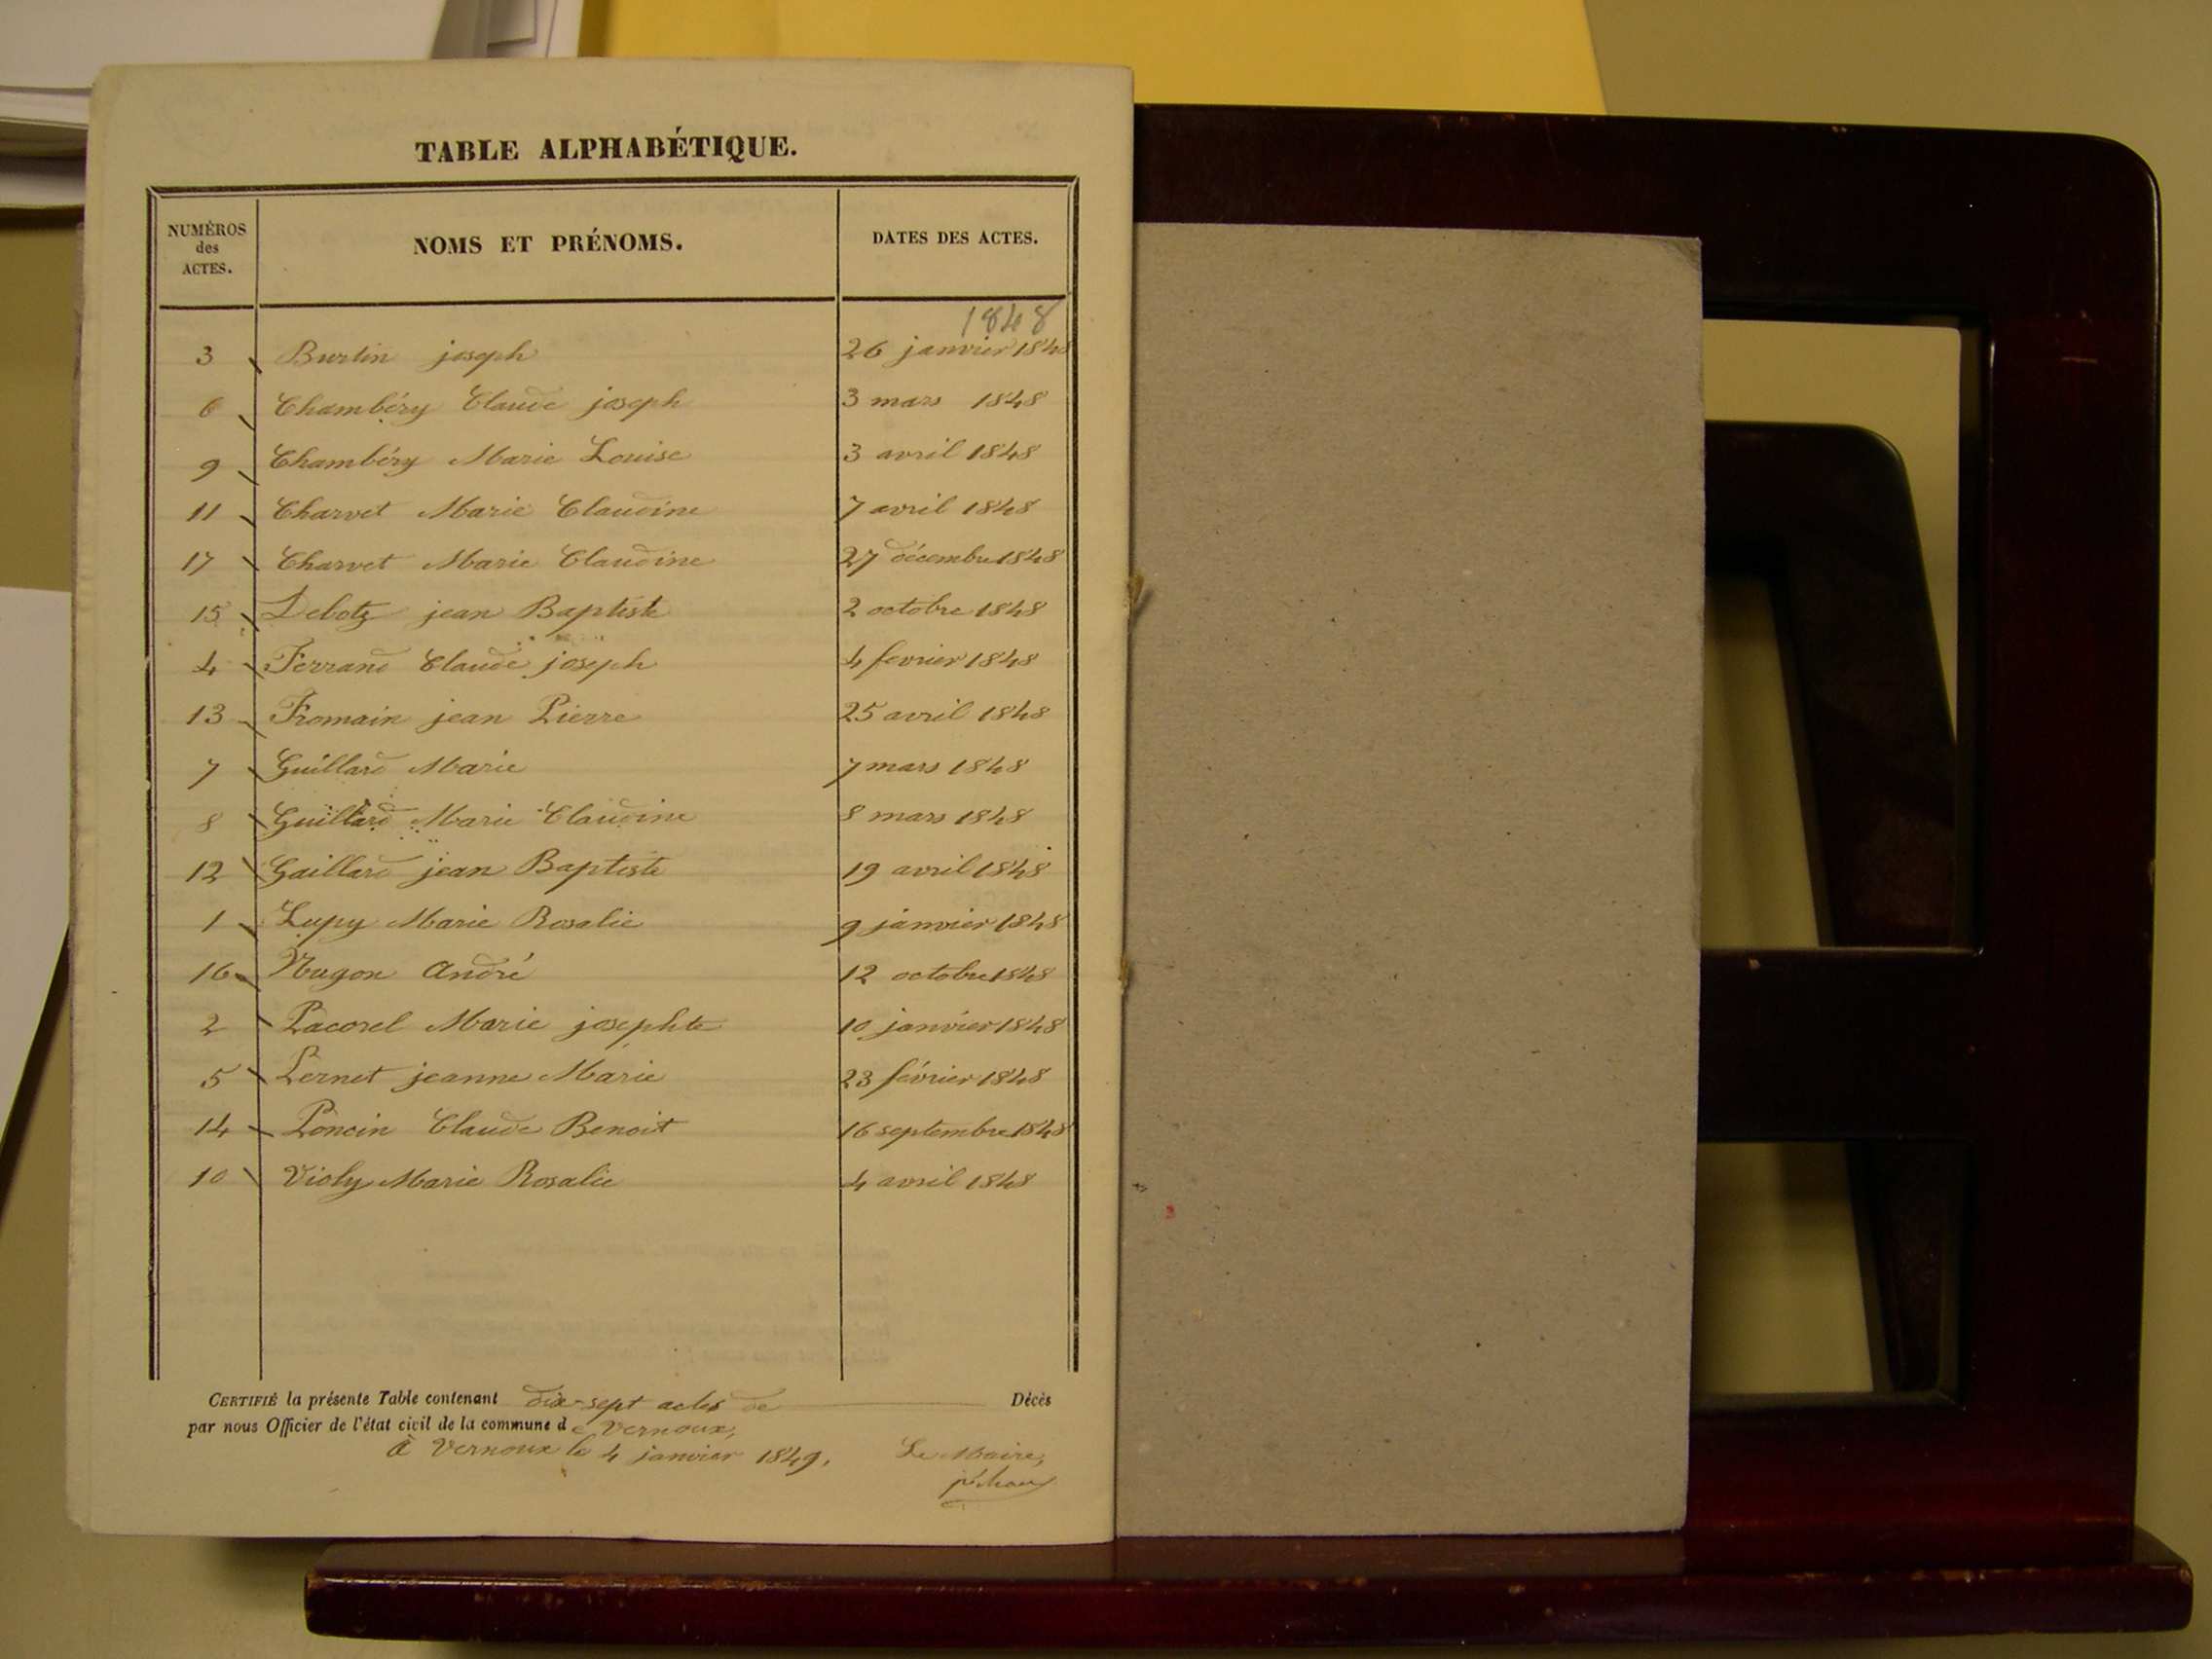 TABLE ALPHABÉTIQUE.
NUMÉROS des ACTES. NOMS ET PRÉNOMS. DATES DES ACTES.
1848
3 Burtin joseph 26 janvier 1848
6 Chambéry Claude joseph 3 mars 1848
9 Chambéry Marie Louise 3 avril 1848
11 Charvet Marie Claudine 7 avril 1848
17 Charvet Marie Claudine 27 décembre 1848
15 jean Baptiste 2 octobre 1848
4 Ferrand Claude joseph 4 fevrier 1848
13 Fromain jean Pierre 25 avril 1848
7 Guillard Marie 7 mars 1848
8 Guillard Marie Claudine 8 mars 1848
12 Gaillard jean Baptiste 19 avril 1848
1 Lupy Marie Rosalie 9 janvier 1848
16 Nugon André 12 octobre 1848
2 Pacorel Marie josephte 10 janvier 1848
5 Pernet jeanne Marie 23 février 1848
14 Poncin Claude Benoit 16 septembre 1848
10 Violy Marie Rosalie 4 avril 1848
CERTIFIÉ la présente Table contenant dix-sept actes de Décès
par nous Officier de l'état civil de la commune de Vernoux,
à Vernoux le 4 janvier 1849. Le Maire,